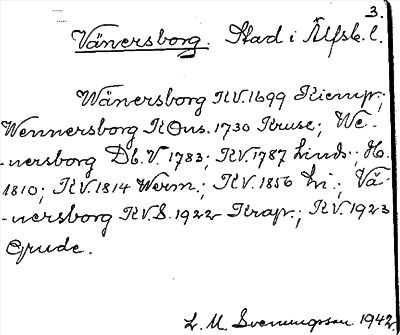 3.
Vänersborg. Stad i Älfsb. l.
Wänersborg KV. 1699 Kiemp.;
Wennersborg KOns. 1730 Kruse; We-
-nersborg Db. V. 1783; KV. 1787 Linds.; H.
1810; KV. 1814 Werm.; KV. 1856 Li.; Vä-
-nersborg KV.S. 1922 Krap.; KV. 1923
Grude.
L. M. Svenungsson 1942.